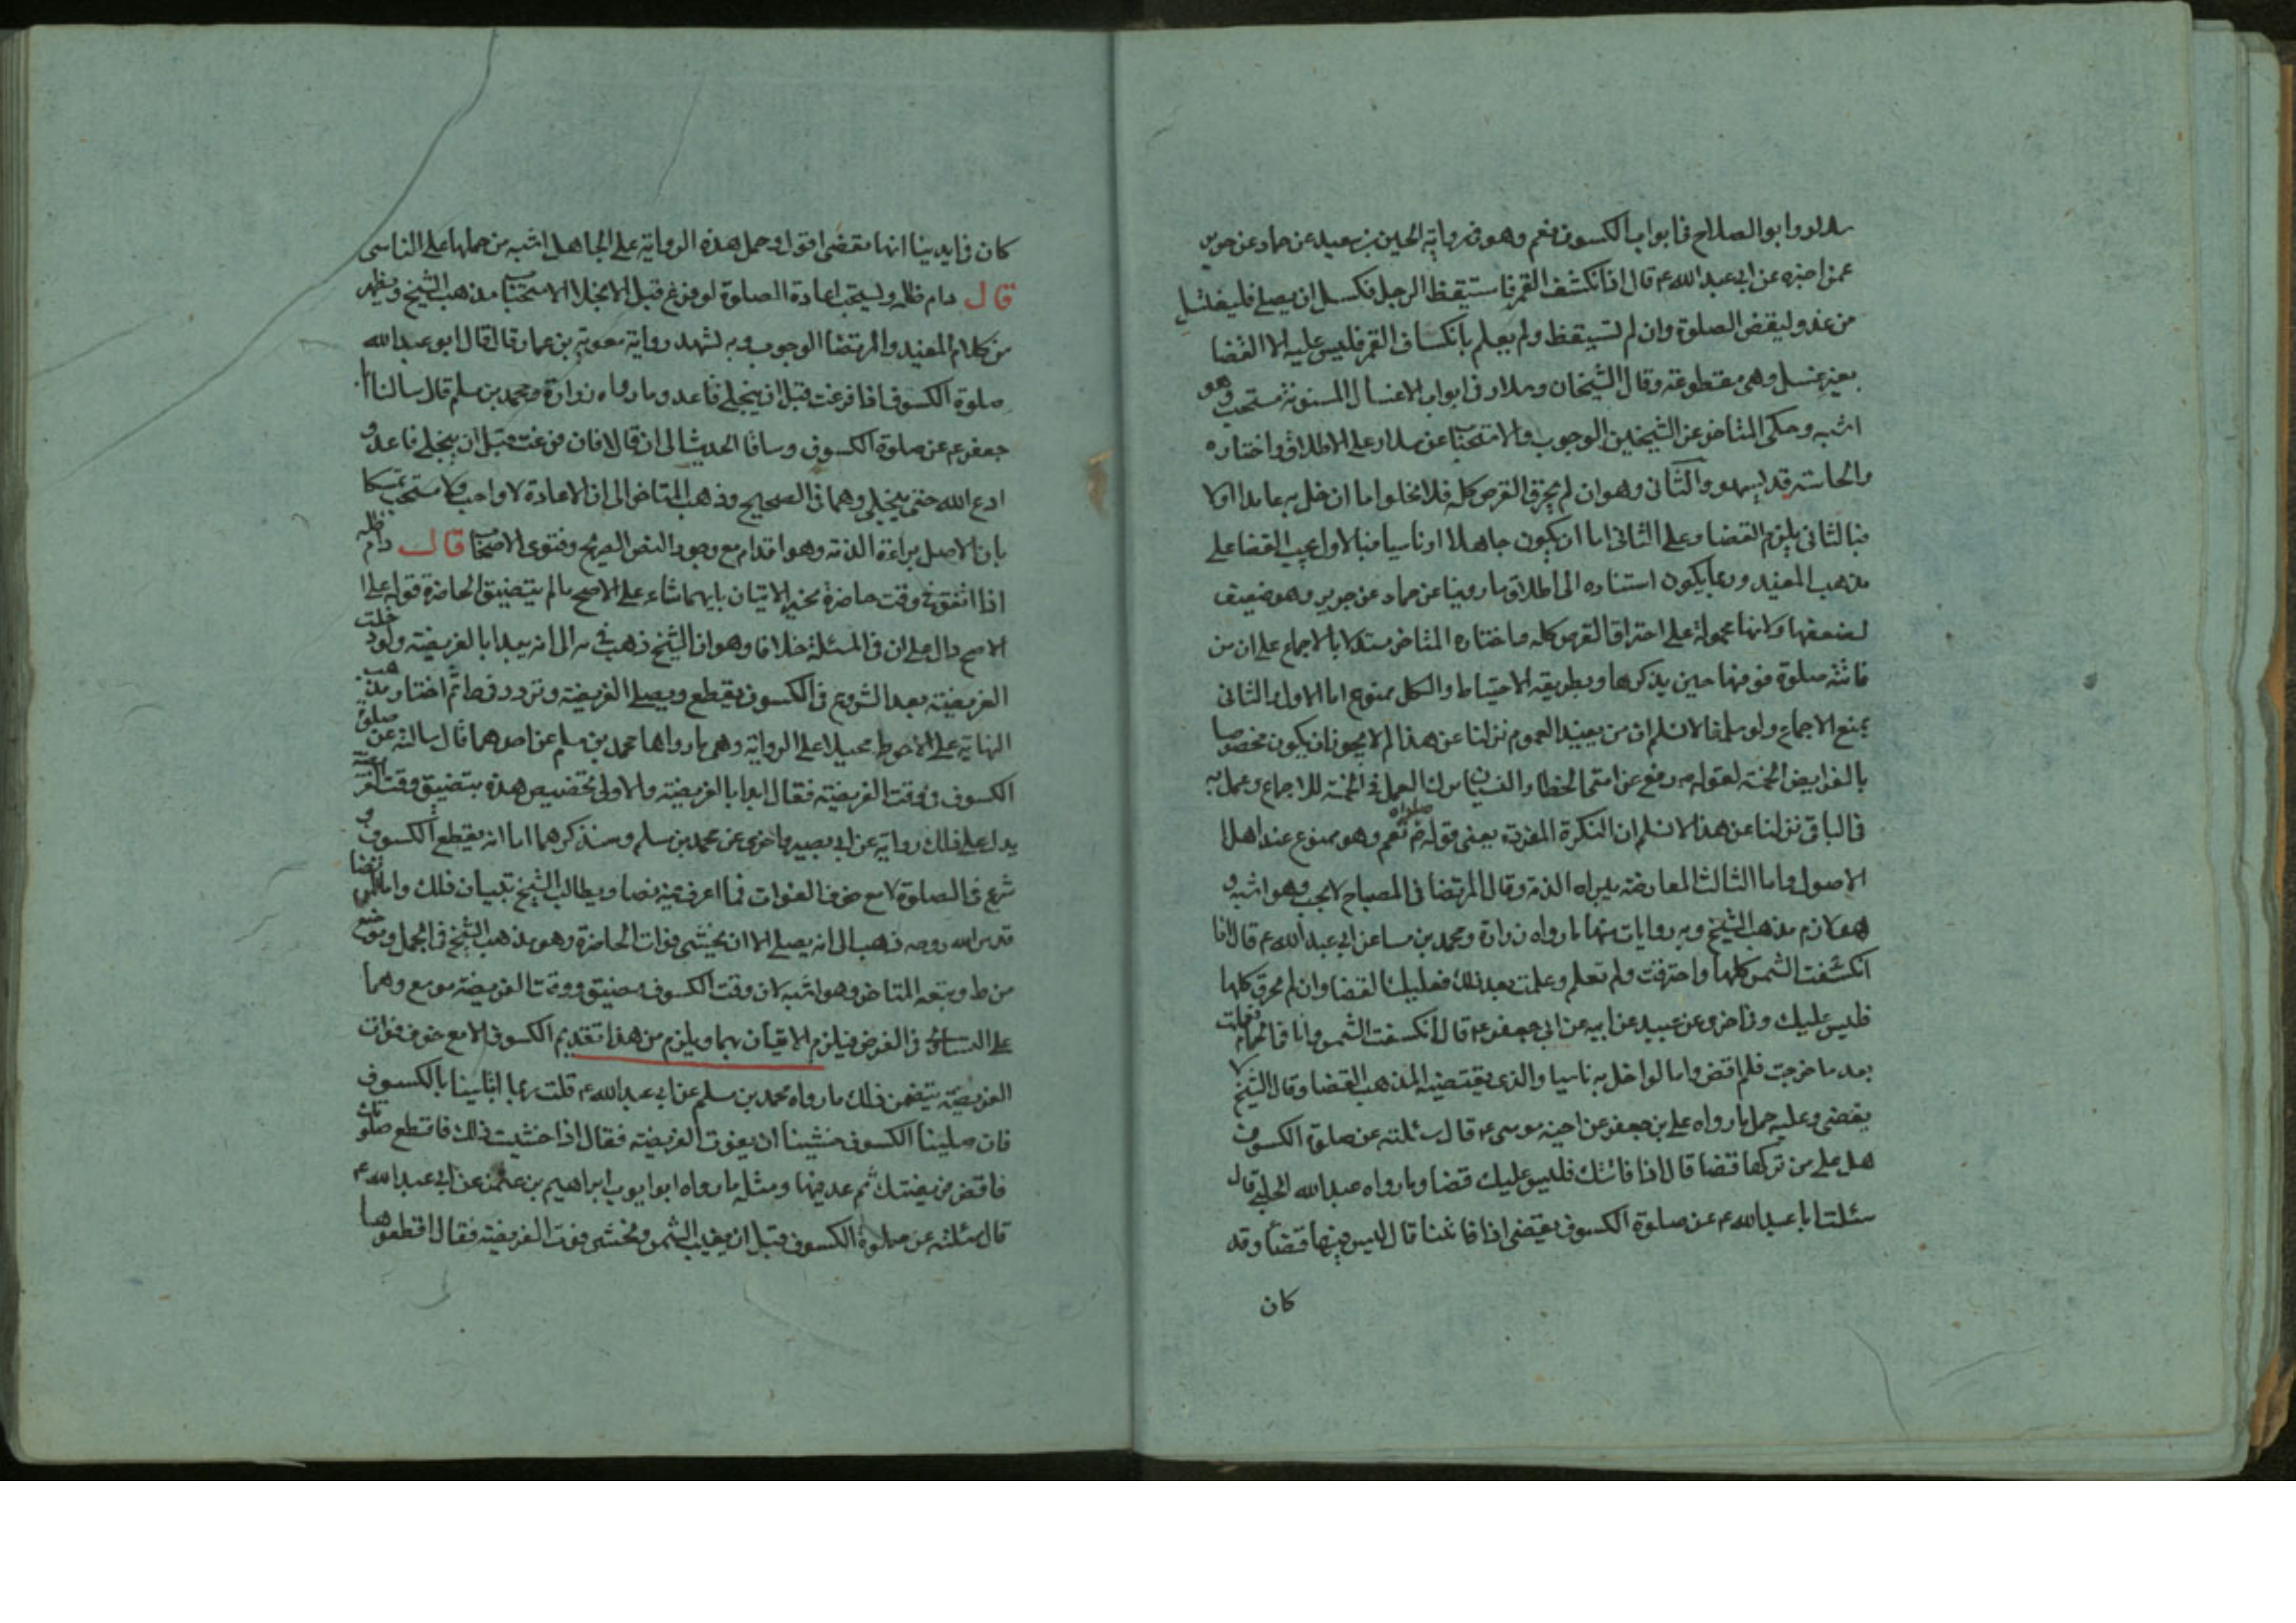 سلار وابو الصلاح في ابواب الكسوف نعم وهو في رواية الحسين بن سعيد عن حماد عن حريز
عمن اخبره عن ابي عبد الله ع قال اذا انكسف القمر فاستيقظ الرجل فكسل ان يصلي فليغتسل
من غد وليقض الصلوة وان لم تستيقظ ولم يعلم بانكساف القمر فليس عليه الا القضا
بغير غسل وهي مقطوعة وقال الشيخان وسلار في ابواب الاغسال المسنونة مستحب وهو
اشبه وحكى المتاخر عن الشيخين الوجوب والاستحباب عن سلار على الاطلاق واختاره
والحاسته قد يسهو والثاني وهو ان لم يحرق القرص كله فلا يخلوا اما ان خل به عامدا اولا
فبالثاني يلزم القضا وعلى الثاني اما ان يكون جاهلا او ناسيا فبالاول يجب القضا على
مذهب المفيد وربما يكون استناده الى اطلاق ما روينا عن حماد عن حريز وهو ضعيف
لضعفها ولانها محمولة على احتراق القرص كله واختاره المتاخر مستدلا بالاجماع على ان من
فاتته صلوة فوقتها حين يذكرها وبطريقه الاحتياط والكل ممنوع اما الاول والثاني
بمنع الاجماع ولو سلم فلا نسلم ان من يفيد العموم نزلنا عن هذا لم لا يجوز ان يكون مخصوصا
بالفرايض الخمسة لقوله ص رفع عن امتي الخطا والنسيان ترك العمل في الخمسة للاجماع وعمل به
في الباقي نزلنا عن هذا لا نسلم ان النكرة المفردة يعني قوله صلوة تعم وهو ممنوع عند اهل
الاصول واما الثالث المعارضة ببراءة الذمة وقال المرتضى في المصباح لا يجب وهو اشبه و
هو لازم مذهب الشيخ وبه روايات منها ما رواه زرارة ومحمد بن مسلم عن ابي عبد الله ع قال اذا
انكسفت الشمس كلها واحترقت ولم تعلم وعلمت بعد ذلك فعليك القضا وان لم تحرق كلها
فليس عليك وفي اخرى عن عبيد عن ابيه عن ابي جعفر ع قال انكسفت الشمس وانا في الحمام فعلمت
بعد ما خرجت فلم اقض واما لو اخل به ناسيا والذي يقتضيه المذهب القضا وقال الشيخ لا
يقضي وعليه حمل ما رواه علي بن جعفر عن اخيه موسى ع قال سئلته عن صلوة الكسوف
هل على من تركها قضا قال اذا فاتتك فليس عليك قضا وما رواه عبيد الله الحلبي قال
سئلت ابا عبد الله ع عن صلوة الكسوف يقضي اذا فاتتنا قال ليس فيها قضا وقد
كان
كان في ايدينا انها تقضى اقول حمل هذه الرواية على الجاهل اشبه من حملها على الناسي
قال دام ظله ويستحب اعادة الصلوة لو فرغ قبل الانجلا الاستحباب مذهب الشيخ ويظهر
من كلام المفيد والمرتضى الوجوب وبه تشهد رواية معوية بن عمار قال قال ابو عبد الله
صلوة الكسوف اذا فرغت قبل ان ينجلي فاعد وما رواه زرارة ومحمد بن مسلم قال سالنا ابا
جعفر ع عن صلوة الكسوف وساقا الحديث الى ان قال فان فرغت قبل ان ينجلي فاعد و
ادع الله حتى ينجلي وهما في الصحيح وذهب المتاخر الى ان الاعادة لا واجب ولا مستحب تمسكا
بان الاصل براءة الذمة وهو اقدام مع وجود النص الصريح وفتوى الاصحاب قال دام ظله
اذا اتفق في وقت حاضرة تخير الاتيان بايهما شاء على الاصح ما لم يتضيق الحاضرة قوله على
الاصح دال على ان في المسئلة خلافا وهو ان الشيخ ذهب في يه الى انه يبدا بالفريضة ولو دخلت
الفريضة بعد الشروع في الكسوف يقطع ويصلي الفريضة وتردد في ط ثم اختار مذهب
النهاية على الاحوط محيلا على الرواية وهي ما رواها محمد بن مسلم عن احدهما قال سالته عن صلوة
الكسوف في وقت الفريضة فقال ابدا بالفريضة والاولى تخصيص هذه بتضيق وقت الفريضة
يدل على ذلك رواية عن ابي بصير واخرى عن محمد بن مسلم وسنذكرهما اما انه يقطع الكسوف و
شرع في الصلوة لا مع خوف الفوات فما اعرف فيه نصا ويطالب الشيخ بتبيان ذلك واما المرتضى
قدس الله روحه ذهب الى انه يصلي الا ان يخشى فوات الحاضرة وهو مذهب الشيخ في الجمل وموضع
من ط وتبعه المتاخر وهو اشبه لان وقت الكسوف مضيق ووقت الفريضة موسع وهما
على التساوي في الفرض فيلزم الاتيان بهما ويلزم من هذا تقديم الكسوف الا مع خوف فوات
الفريضة يتضمن ذلك ما رواه محمد بن مسلم عن ابي عبد الله ع قلت ربما ابتلينا بالكسوف
فان صلينا الكسوف خشينا ان يفوت الفريضة فقال اذا خشيت ذلك فاقطع صلوتك
فاقض فريضتك ثم عد فيها ومثله ما رواه ابو ايوب ابراهيم بن عثمن عن ابي عبد الله ع
قال سئلته عن صلوة الكسوف قبل ان يغيب الشمس ونخشى فوت الفريضة فقال اقطعوها